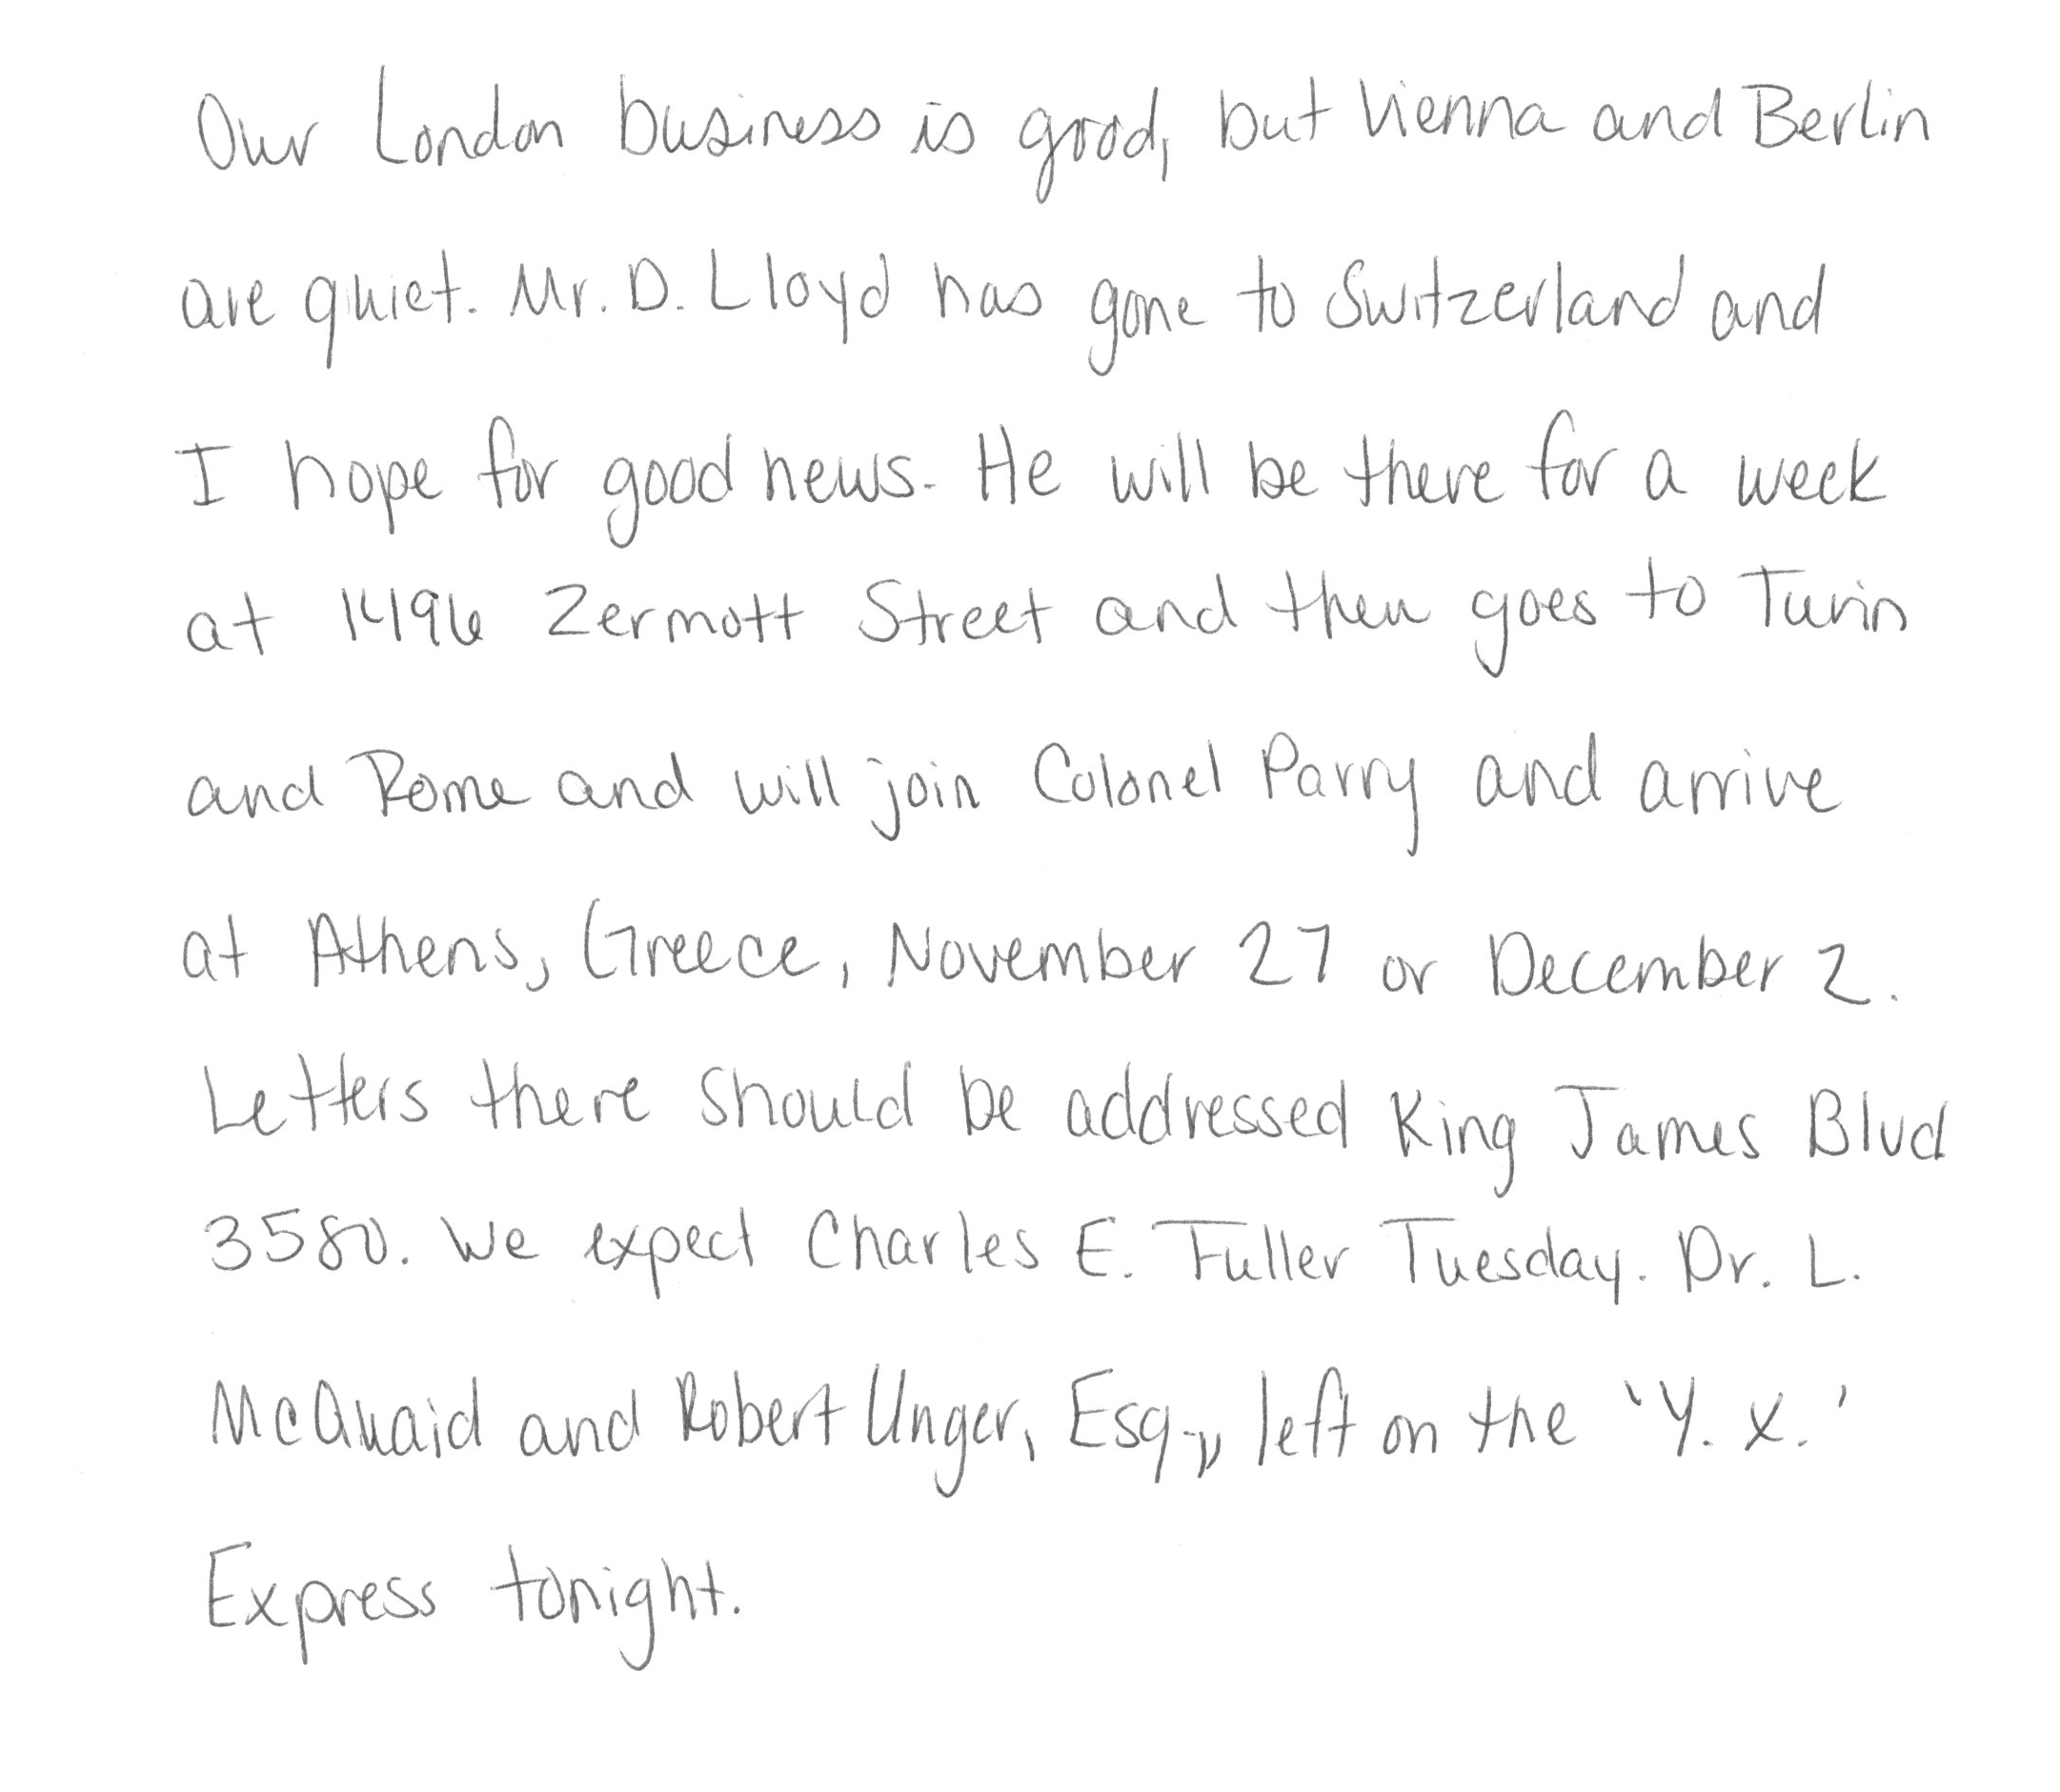 Our London business is good, but Vienna and Berlin
are quiet. Mr. D. Lloyd has gone to Switzerland and
I hope for good news. He will be there for a week
at 1496 Zermott Street and then goes to Turin
and Rome and will join Colonel Parry and arrive
at Athens, Greece, November 27 or December 2.
Letters there should be addressed King James Blvd
3580. We expect Charles E. Fuller Tuesday. Dr. L.
McQuaid and Robert Unger, Esq., left on the 'Y. X.'
Express tonight.